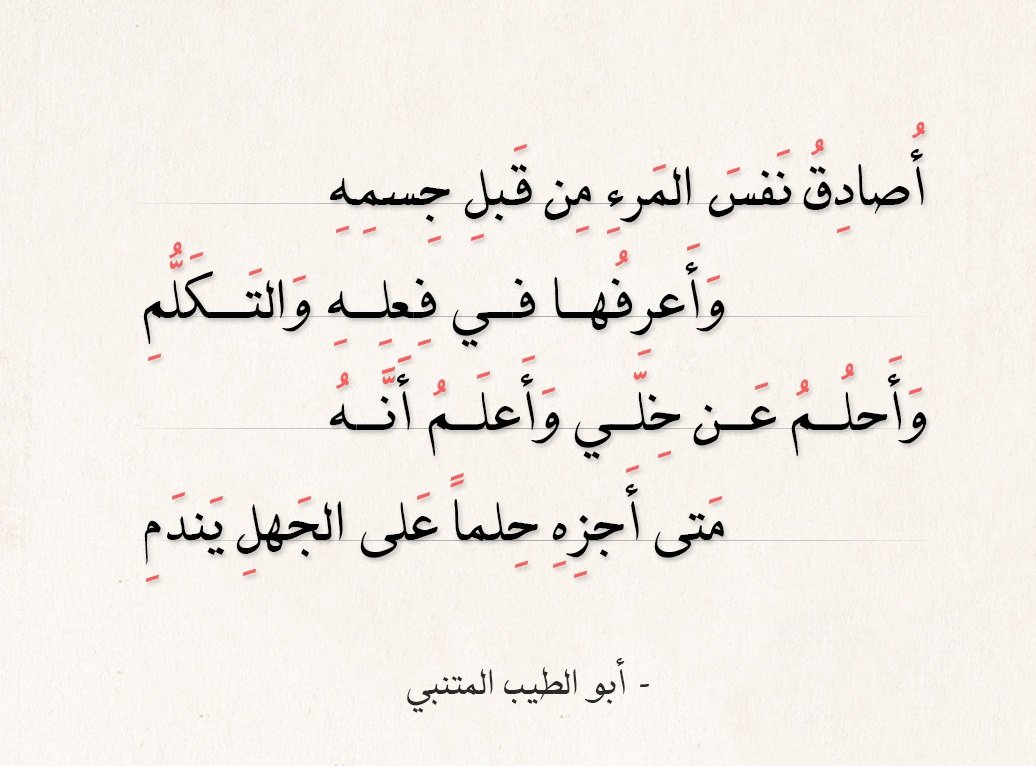 أُصادِقُ نَفسَ المَرءِ مِن قَبلِ جِسمِهِ
وَأَعرِفُها فــي فِعلِــهِ وَالتَــكَلُّمِ
وَأَحلُــمُ عَــن خِلّــي وَأَعلَــمُ أَنَّــهُ
مَتى أَجزِهِ حِلماً عَلى الجَهلِ يَندَمِ
- أبو الطيب المتنبي